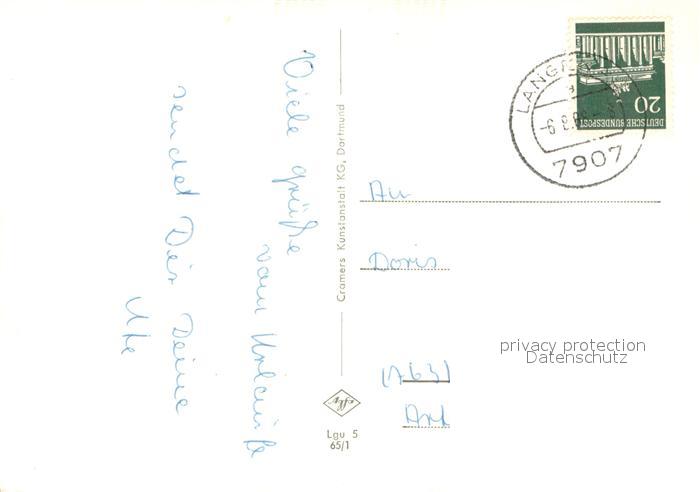 Viele grüße
vom Urlaub
sendet Dir Deine
Ute
Cramers Kunstanstalt KG, Dortmund
Lgu 5
65/1
20
DEUTSCHE BUNDESPOST
7907
An
Doris
privacy protection
Datenschutz